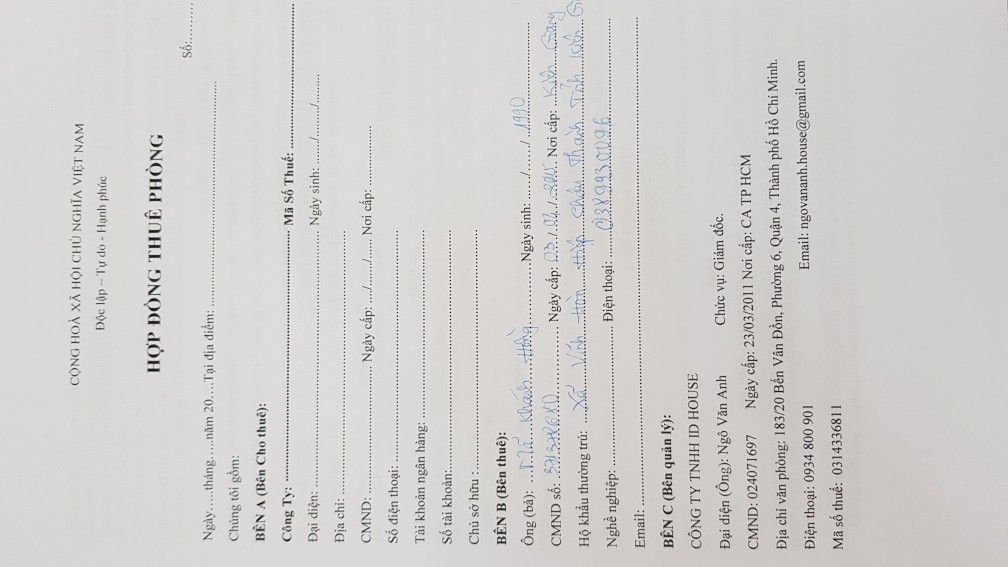 CỘNG HOÀ XÃ HỘI CHỦ NGHĨA VIỆT NAM
Độc lập – Tự do - Hạnh phúc
Số:.........
HỢP ĐỒNG THUÊ PHÒNG
Ngày….tháng…..năm 20….Tại địa điểm:..........................................................
Chúng tôi gồm:
BÊN A (Bên Cho thuê):
Công Ty: ................................................................ Mã Số Thuế: ................................
Đại diện: ................................................................ Ngày sinh: ....../....../......
Địa chỉ: ................................................................
CMND: ................................ Ngày cấp: …/…./….. Nơi cấp: ................
Số điện thoại: ................................................................
Tài khoản ngân hàng: ................................................................
Số tài khoản: ................................................................
Chủ sở hữu : ................................................................
BÊN B (Bên thuê):
Ông (bà): ...... Khánh Hồng ......Ngày sinh: ....../....../...1990
CMND số: ................ Ngày cấp: 03./.02./ ......... Nơi cấp: Kiên Giang
Hộ khẩu thường trú: ...Xã Vĩnh Hòa Hiệp Châu Thành Tỉnh Kiên Gi
Nghề nghiệp: ................................ Điện thoại: ...0389930096
Email: ................................................................
BÊN C (Bên quản lý):
CÔNG TY TNHH ID HOUSE
Đại diện (Ông): Ngô Văn Anh Chức vụ: Giám đốc.
CMND: 024071697 Ngày cấp: 23/03/2011 Nơi cấp: CA TP HCM
Địa chỉ văn phòng: 183/20 Bến Vân Đồn, Phường 6, Quận 4, Thành phố Hồ Chí Minh.
Điện thoại: 0934 800 901 Email: ngovananh.house@gmail.com
Mã số thuế: 0314336811